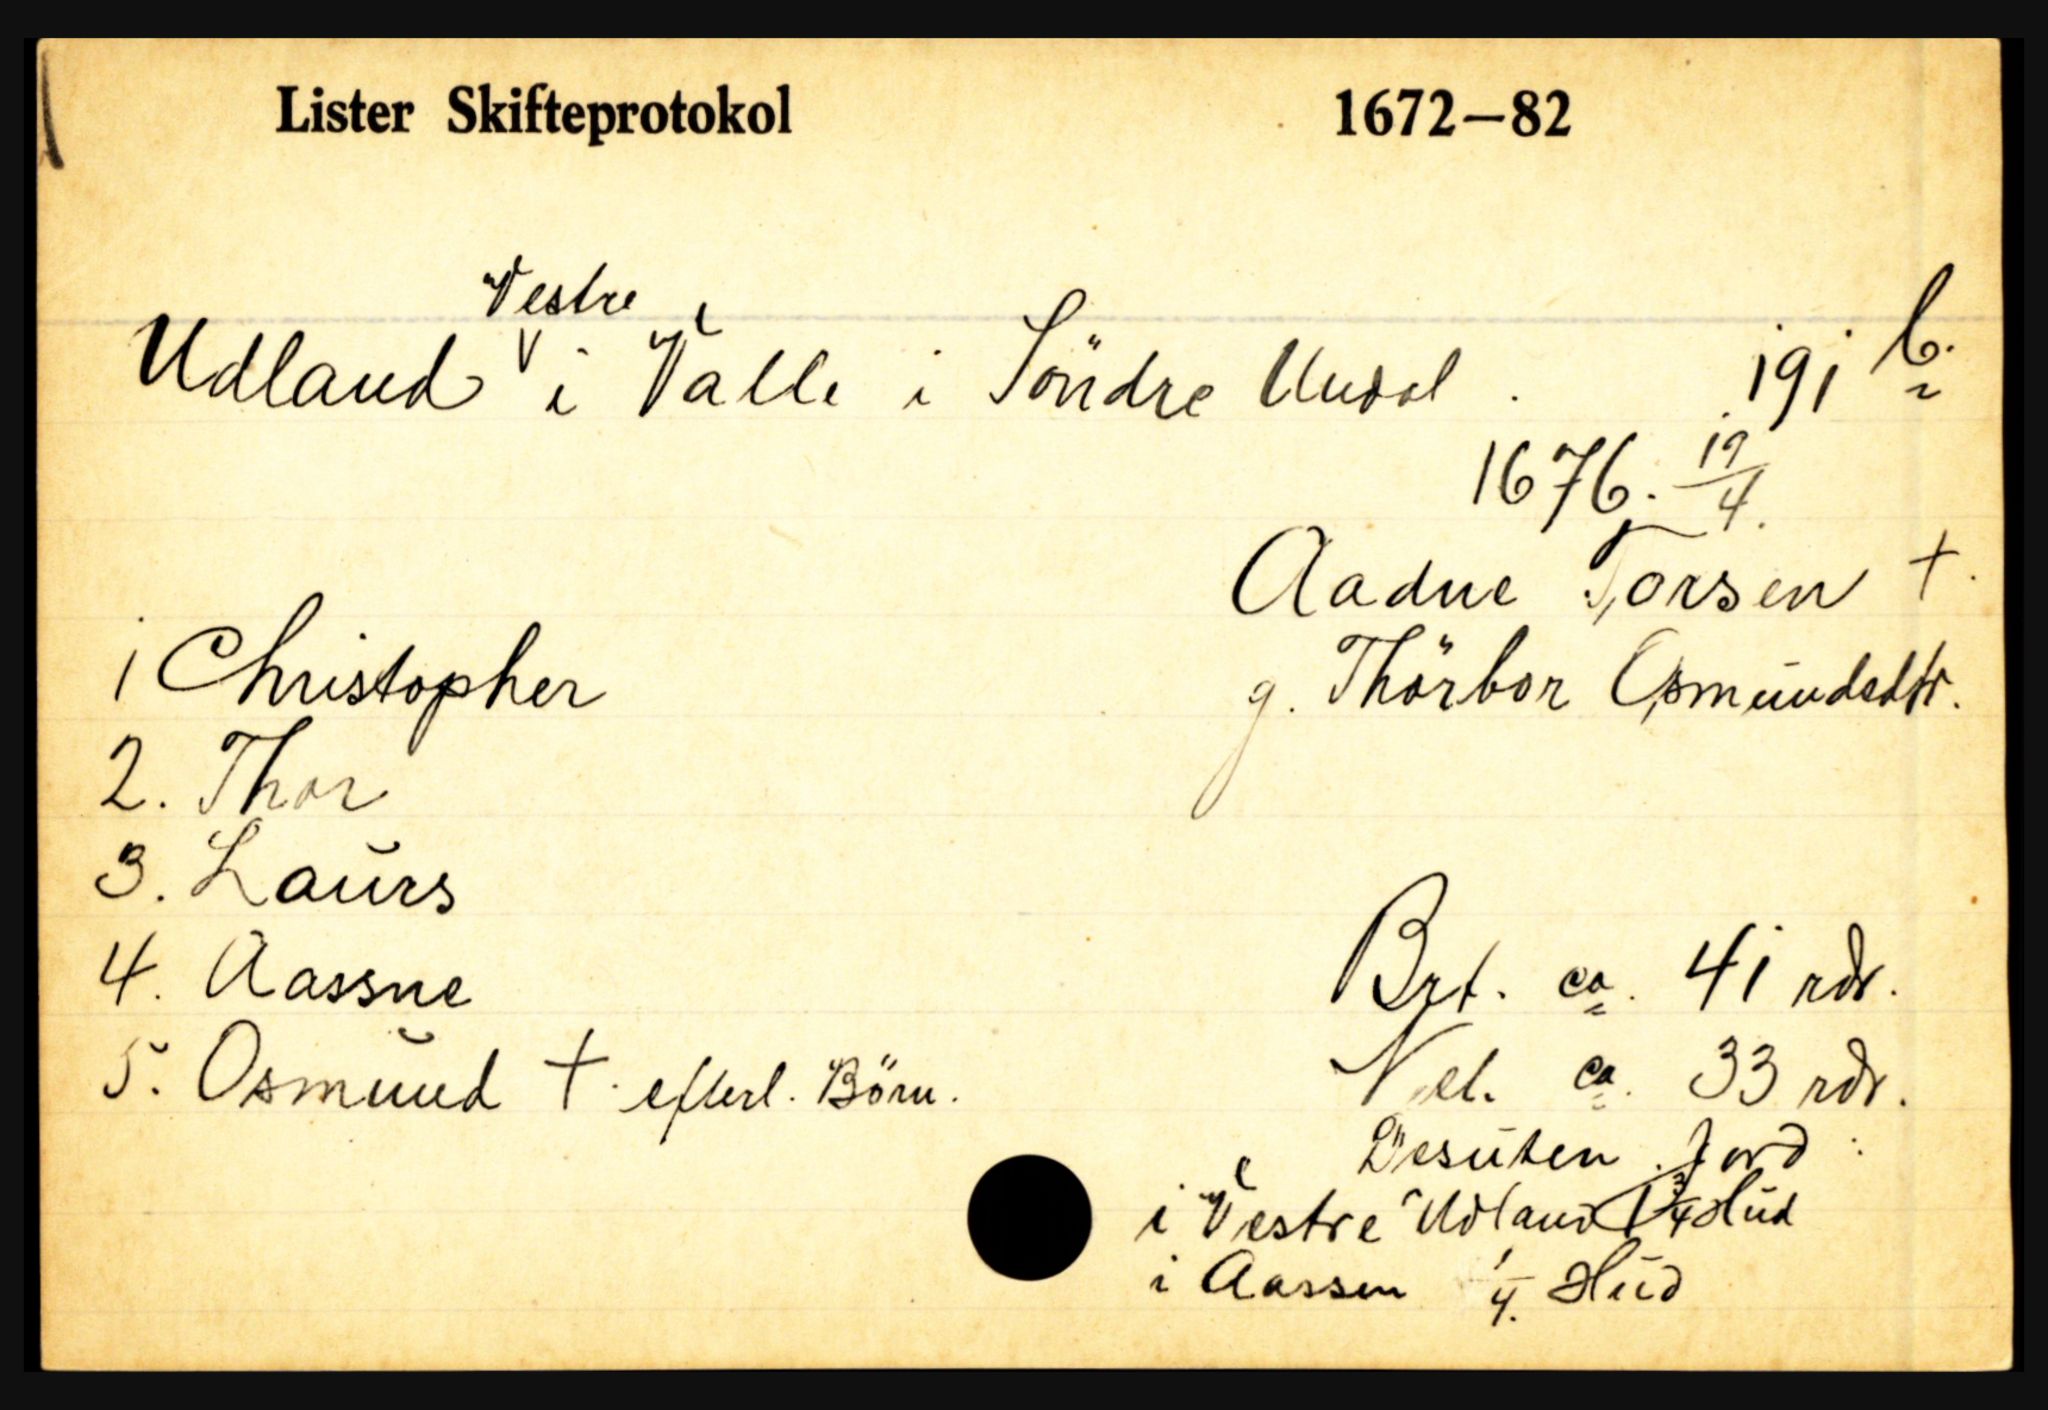 Lister Skifteprotokol 1672–82
Vestre
Udland i Valle i Söndre Undal. 191 b.
1676. 19/4.
Aadne Torsen †.
g. Thörbor Osmundsdtr.
1 Christopher
2. Thor
3. Laurs
4. Aassne
5. Osmund † efterl. Börn.
Brt. ca. 41 rdr.
Net. ca. 33 rdr.
Desuten Jord:
i Vestre Udland 1 3/4 Hud
i Aassen 1/4. Hud